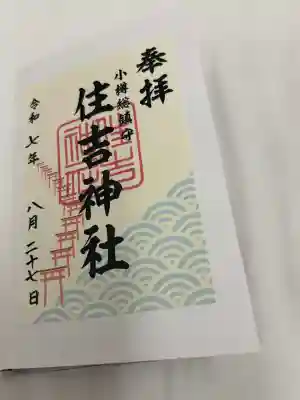 奉拝
小樽総鎮守
住吉神社
令和七年 八月二十七日